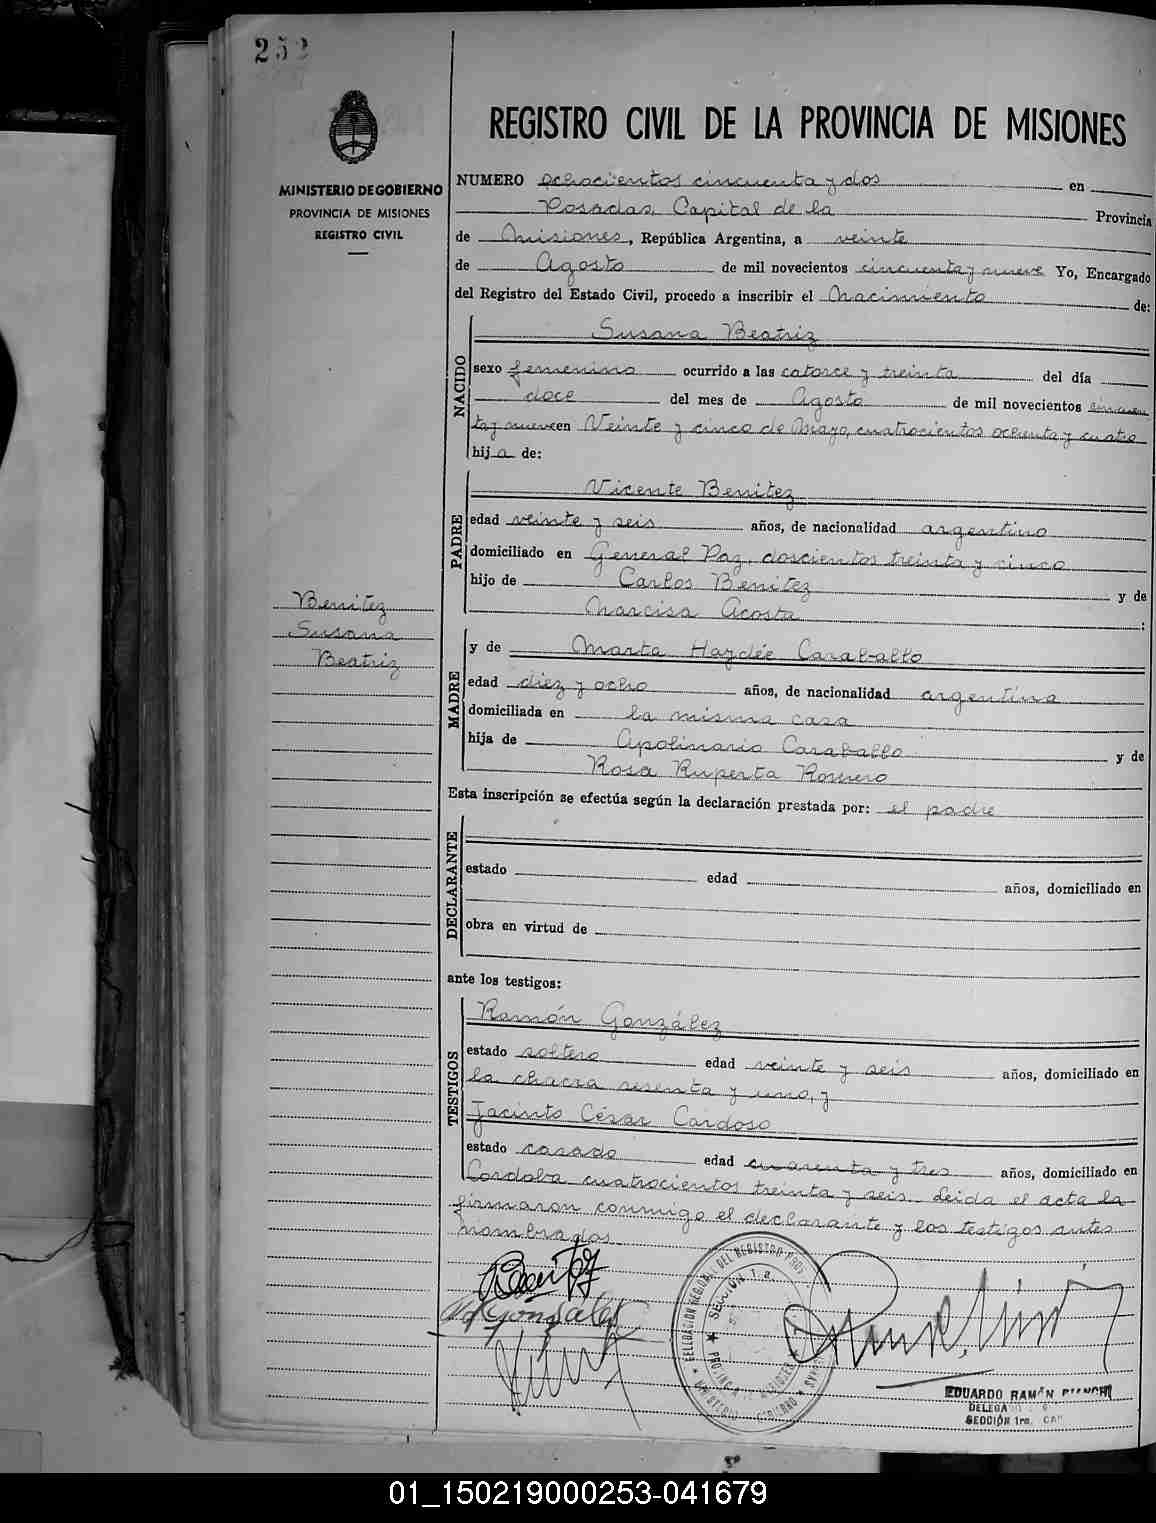 252
MINISTERIO DE GOBIERNO
PROVINCIA DE MISIONES
REGISTRO CIVIL
Benitez
Susana
Beatriz
REGISTRO CIVIL DE LA PROVINCIA DE MISIONES
NUMERO ochocientos cincuenta y dos en
Posadas, Capital de la Provincia
de Misiones, República Argentina, a veinte
de Agosto de mil novecientos cincuenta y nueve Yo, Encargado
del Registro del Estado Civil, procedo a inscribir el Nacimiento de:
NACIDO
Susana Beatriz
sexo femenino ocurrido a las catorce y treinta del día
doce del mes de Agosto de mil novecientos cincuen
ta y nueve en Veinte y cinco de Mayo, cuatrocientos ochenta y cuatro
hija de:
PADRE
Vicente Benitez
edad veinte y seis años, de nacionalidad argentino
domiciliado en General Paz, doscientos treinta y cinco
hijo de Carlos Benitez y de
Narcisa Acosta :
MADRE
y de Marta Haydée Caraballo
edad diez y ocho años, de nacionalidad argentina
domiciliada en la misma casa
hija de Apolinario Caraballo y de
Rosa Ruperta Romero
Esta inscripción se efectúa según la declaración prestada por: el padre
DECLARANTE
estado edad años, domiciliado en
obra en virtud de
ante los testigos:
TESTIGOS
Ramón González
estado soltero edad veinte y seis años, domiciliado en
la chacra sesenta y uno, y
Jacinto César Cardoso
estado casado edad cuarenta y tres años, domiciliado en
Cordoba cuatrocientos treinta y seis. Leida el acta la
firmaron conmigo el declarante y los testigos antes
nombrados.
Benitez
Gonsalez
SECCION 1a.
EDUARDO RAMÓN BIANCHI
DELEGADO
SECCIÓN 1ra. CAP
01_150219000253-041679